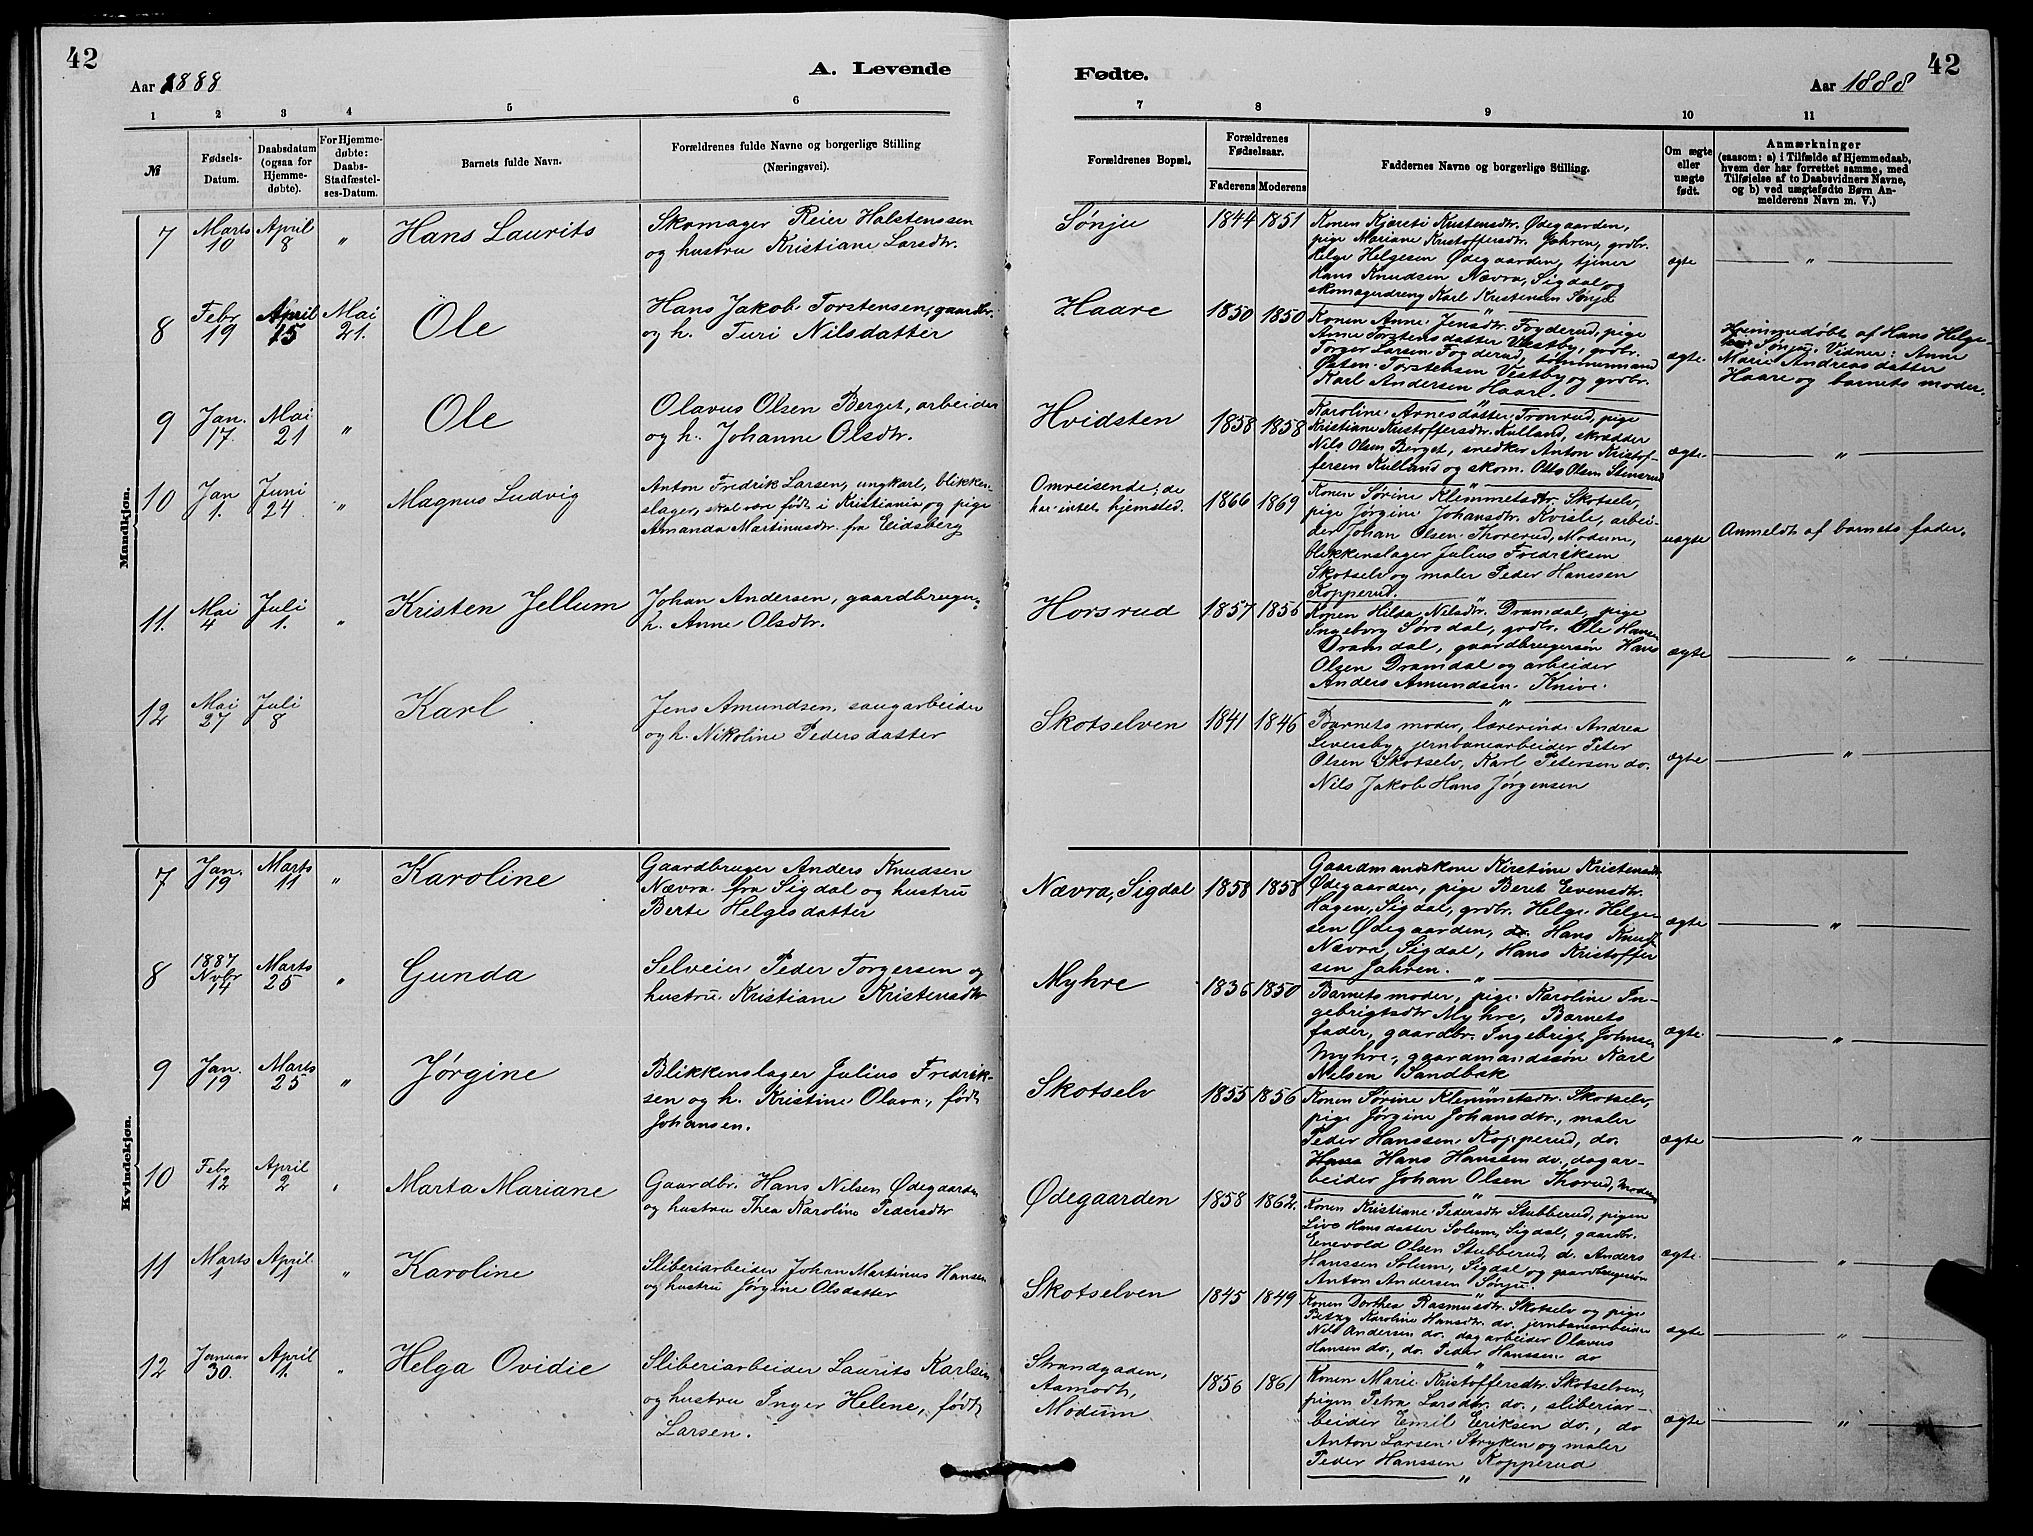 42
Aar 1888
A. Levende
1 2 3 4 5 6
№
Fødsels-
Datum.
Daabsdatum
(ogsaa for
Hjemme-
døbte).
For Hjemme-
døbte:
Daabs-
Stadfæstel-
ses-Datum.
Barnets fulde Navn.
Forældrenes fulde Navne og borgerlige Stilling
(Næringsvei).
Mandkjøn.
7 Marts 10 April 8 " Hans Laurits
Skomager Reier Halstenssen
og hustru Kristiane Larsdtr.
8 Febr 19 April 15 Mai 21. Ole
Hans Jakob Torstensen, gaardbr.
og h. Turi Nilsdatter
9 Jan. 17. Mai 21 " Ole
Olavus Olsen Berget, arbeider
og h. Johanne Olsdtr.
10 Jan 1. Juni 24 " Magnus Ludvig
Anton Fredrik Larsen, ungkarl, blikken-
slager, skal være født i Kristiania og pige
Amanda Martinusdtr. fra Eidsberg
11. Mai 4 Juli 1. " Kristen Jellum
Johan Andersen, gaardbruger,
h. Anne Olsdtr.
12 Mai 27 Juli 8 Karl
Jens Amundsen, saugarbeider
og h. Nikoline Pedersdatter
Kvindekjøn.
7 Jan. 19 Marts 11 " Karoline
Gaardbruger Anders Knudsen
Nævra fra Sigdal og hustru
Berte Helgesdatter
8 1887 Novbr 14 Marts 25 " Gunda
Selveier Peder Torgersen og
hustru Kristiane Kristensdtr
9 Jan. 19 Marts 25 " Jørgine
Blikkenslager Julius Fredrik-
sen og h. Kristine Olava, født
Johansen.
10 Febr 12 April 2 " Marta Mariane
Gaardbr. Hans Nilsen Ødegaarden
og hustru Thea Karoline Pedersdtr
11 Marts 1 April 1 " Karoline
Sliberiarbeider Johan Martinus Hansen
og hustru Jørgine Olsdatter
12 Januar 30. April 1. " Helga Ovidie
Sliberiarbeider Laurits Karlsen
og hustru Inger Helene, født
Larsen.
Fødte.
42
Aar 1888
7 8 9 10 11
Forældrenes Bopæl.
Forældrenes
Fødselsaar.
Faderens Moderens
Faddernes Navne og borgerlige Stilling.
Om ægte
eller
uægte
født.
Anmærkninger
(saasom: a) i Tilfælde af Hjemmedaab,
hvem der har forrettet samme, med
Tilføielse af to Daabsvidners Navne,
og b) ved uægtefødte Børn An-
melderens Navn m. V.)
Sønju 1844 1851
Konen Kjersti Kristensdtr. Ødegaarden,
pige Mariane Kristoffersdtr. Jahren, grdbr.
Helge Helgesen Ødegaarden, tjener
Hans Knudsen Nævra, Sigdal og
skomagerdreng Karl Kristensen Sønju
ægte "
Haare 1850 1850
Konen Anne Jensdtr. Fogderud, pige
Anne Torstensdatter Vestby, grdbr.
Torger Larsen Fogderud, tømmermand
Østen Torstensen Vestby og grdbr.
Karl Andersen Haare.
ægte
Hjemmedøbt af Hans Helge-
sen Sønju. Vidner: Anne
Marie Andreasdatter
Haare og barnets moder.
Hvidsten 1858 1858
Karoline Arnesdatter Tronrud, pige
Kristiane Kristoffersdtr. Kulland, skrædder
Nils Olsen Berget, snedker Anton Kristof-
fersen Kulland og skom. Otto Olsen Stensrud
ægte "
Omreisende; de
har intet hjemsted. 1866 1869
Konen Sørine Klemmetsdtr. Skotselv,
pige Jørgine Johansdtr. Kvisle, arbei-
der Johan Olsen Thorerud, Modum,
blikkenslager Julius Fredriksen
Skotselv og maler Peder Hanssen
Kopperud.
uægte Anmeldt af barnets fader.
Horsrud 1857 1856
Konen Hilda Nilsdtr. Dramdal, pige
Ingeborg Sørsdal, grdbr. Ole Hansen
Dramdal, gaardbrugersøn Hans
Olsen Dramdal og arbeider
Anders Amundsen Knive.
ægte "
Skotselven 1841 1846
Barnets moder, lærerinde Andrea
Seversby, jernbanearbeider Peter
Olsen Skotselv, Karl Petersen do.
Nils Jakob Hans Jørgensen
ægte "
Nævra, Sigdal 1858 1858
Gaardmandskone Kirstine Kristensdtr
Ødegaarden, pige Beret Evensdtr.
Hagen, Sigdal, grdbr. Helge Helge-
sen Ødegaarden, Hans Knuds.
Nævra, Sigdal, Hans Kristoffer
sen Jahren.
ægte "
Myhre 1836 1850
Barnets moder, pige Karoline In-
gebrigtsdtr Myhre, Barnets
fader, gaardbr. Ingebrigt Johnsen
Myhre, gaardmandssøn Karl
Nielsen Sandbæk
ægte "
Skotselv 1855 1856
Konen Sørine Klemmetsdtr. Skotselv,
pige Jørgine Johansdtr, maler
Peder Hanssen Kopperud, do.
Hans Hanssen do, dagar-
beider Johan Olsen Thorud, Modum
ægte "
Ødegaarden 1858 1862.
Konen Kristiane Pedersdtr Stubberud, pigen
Live Hansdatter Solum, Sigdal, gaardbr.
Enevold Olsen Stubberud, d. Anders
Hanssen Solum, Sigdal og gaardbrugersøn
Anton Andersen Sønju.
ægte "
Skotselven 1845 1849
Konen Dorthea Rasmusdtr. Skotselv og pige
Betzy Karoline Hansdtr. do. jernbanearbeider
Nils Andersen do. dagarbeider Olavus
Hansen do., do. Peder Hanssen do
ægte "
Strandgaden,
Aamodt,
Modum 1856 1861
Konen Marie Kristoffersdtr. Skotselven,
pigen Petra Larsdtr. do., sliberiar-
beider Emil Eriksen do., do
Anton Larsen Stryken og maler
Peder Hanssen Kopperud
ægte "